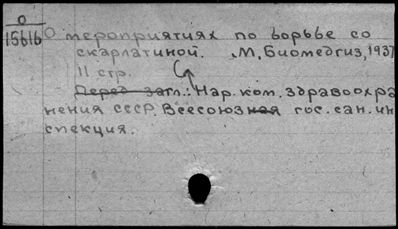 О
15616
О мероприятиях по борьбе со
скарлатиной. М, Биомедгиз, 1937
11 стр.
Перед загл.: Нар. ком. здравоохра
нения СССР. Всесоюзная гос. сан. ин
спекция.